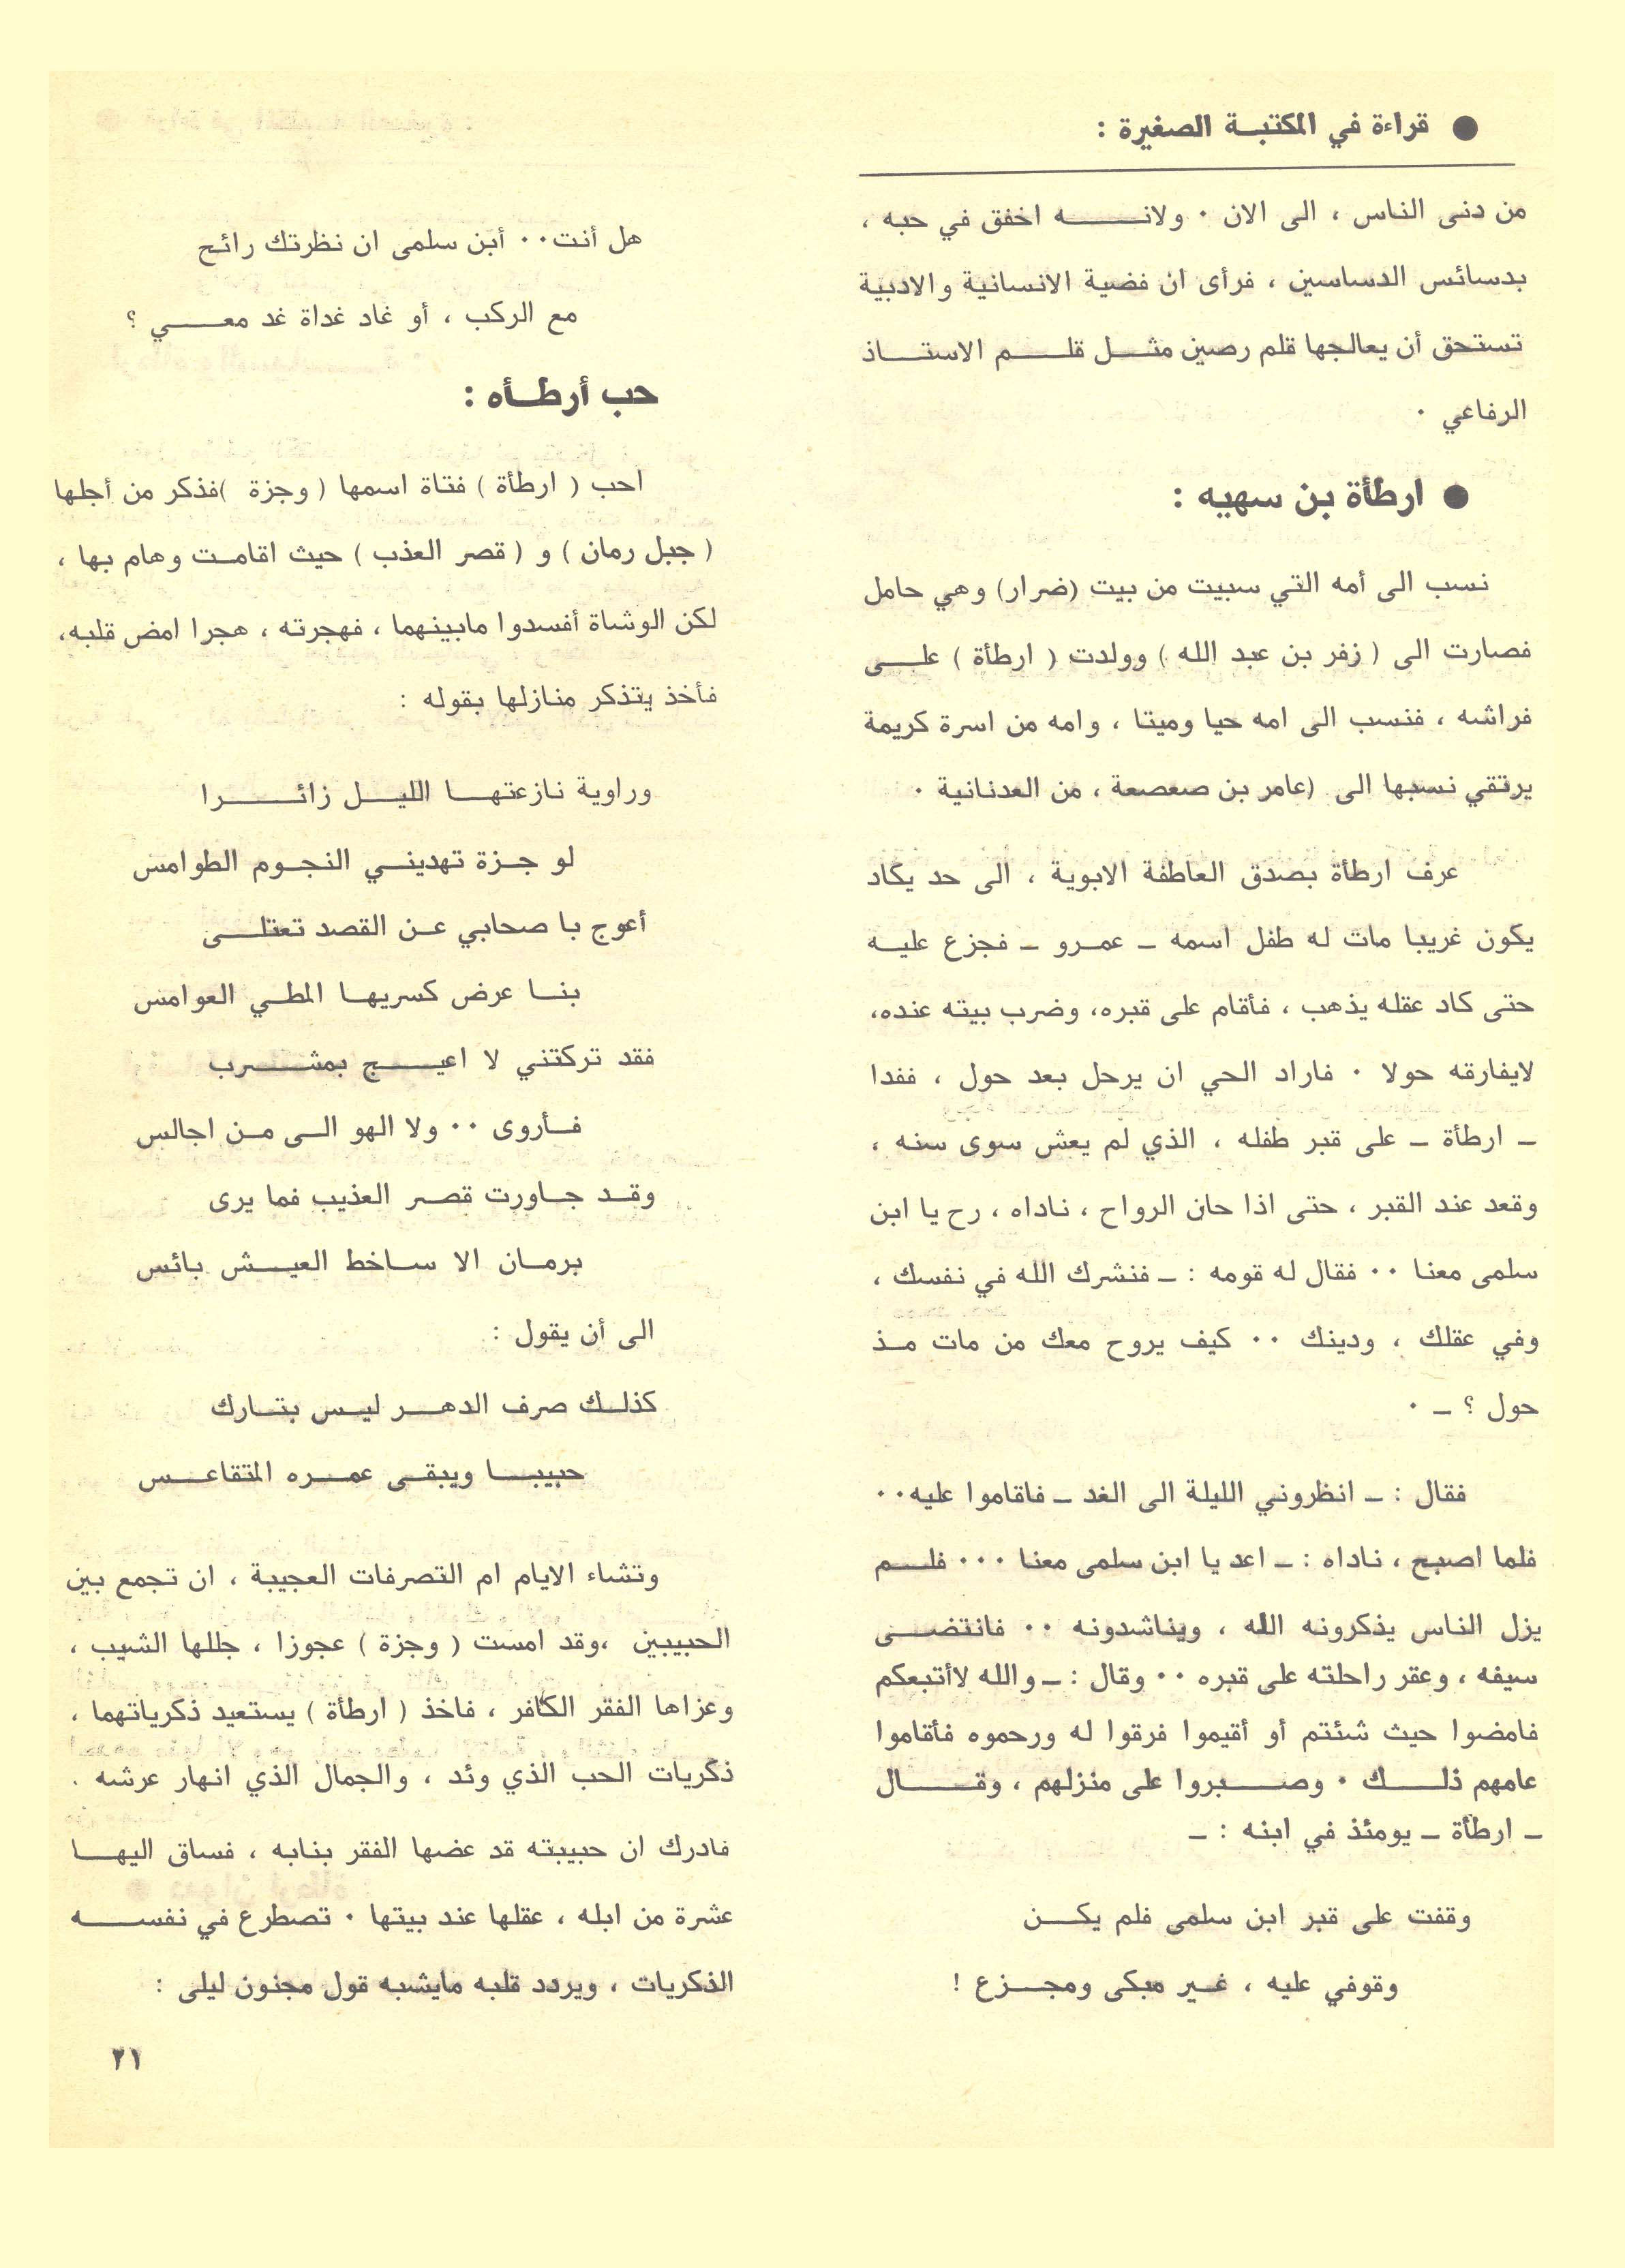 ● قراءة في المكتبة الصغيرة :
من دنى الناس ، الى الان ٠ ولانه اخفق في حبه ،
بدسائس الدساسين ، فرأى ان فضية الانسانية والادبية
تستحق أن يعالجها قلم رصين مثل قلم الاستاذ
الرفاعي ٠
● ارطأة بن سهيه :
نسب الى أمه التي سبيت من بيت (ضرار) وهي حامل
فصارت الى ( زفر بن عبد الله ) وولدت ( ارطأة ) على
فراشه ، فنسب الى امه حيا وميتا ، وامه من اسرة كريمة
يرتقي نسبها الى (عامر بن صعصعة ، من العدنانية ٠
عرف ارطأة بصدق العاطفة الابوية ، الى حد يكاد
يكون غريبا مات له طفل اسمه ـ عمرو ـ فجزع عليه
حتى كاد عقله يذهب ، فأقام على قبره، وضرب بيته عنده،
لايفارقه حولا ٠ فاراد الحي ان يرحل بعد حول ، ففدا
ـ ارطأة ـ على قبر طفله ، الذي لم يعش سوى سنه ،
وقعد عند القبر ، حتى اذا حان الرواح ، ناداه ، رح يا ابن
سلمى معنا ٠٠ فقال له قومه : ـ فنشرك الله في نفسك ،
وفي عقلك ، ودينك ٠٠ كيف يروح معك من مات مذ
حول ؟ ـ ٠
فقال : ـ انظروني الليلة الى الغد ـ فاقاموا عليه٠٠
فلما اصبح ، ناداه : ـ اعد يا ابن سلمى معنا ٠٠٠ فلم
يزل الناس يذكرونه الله ، ويناشدونه ٠٠ فانتضى
سيفه ، وعقر راحلته على قبره ٠٠ وقال : ـ والله لاأتبعكم
فامضوا حيث شئتم أو أقيموا فرقوا له ورحموه فأقاموا
عامهم ذلك ٠ وصبروا على منزلهم ، وقال
ـ ارطأة ـ يومئذ في ابنه : ـ
وقفت على قبر ابن سلمى فلم يكن
وقوفي عليه ، غير مبكى ومجزع !
هل أنت٠٠ أبن سلمى ان نظرتك رائح
مع الركب ، أو غاد غداة غد معي ؟
حب أرطأه :
احب ( ارطأة ) فتاة اسمها ( وجزة )فذكر من أجلها
( جبل رمان ) و ( قصر العذب ) حيث اقامت وهام بها ،
لكن الوشاة أفسدوا مابينهما ، فهجرته ، هجرا امض قلبه،
فأخذ يتذكر منازلها بقوله :
وراوية نازعتها الليل زائرا
لو جزة تهديني النجوم الطوامس
أعوج با صحابي عن القصد تعتلى
بنا عرض كسريها المطي العوامس
فقد تركتني لا اعيج بمشرب
فأروى ٠٠ ولا الهو الى من اجالس
وقد جاورت قصر العذيب فما يرى
برمان الا ساخط العيش بائس
الى أن يقول :
كذلك صرف الدهر ليس بتارك
حبيبا ويبقى عمره المتقاعس
وتشاء الايام ام التصرفات العجيبة ، ان تجمع بين
الحبيبين ،وقد امست ( وجزة ) عجوزا ، جللها الشيب ،
وعزاها الفقر الكافر ، فاخذ ( ارطأة ) يستعيد ذكرياتهما ،
ذكريات الحب الذي وئد ، والجمال الذي انهار عرشه .
فادرك ان حبيبته قد عضها الفقر بنابه ، فساق اليها
عشرة من ابله ، عقلها عند بيتها ٠ تصطرع في نفسه
الذكريات ، ويردد قلبه مايشبه قول مجنون ليلى :
٢١